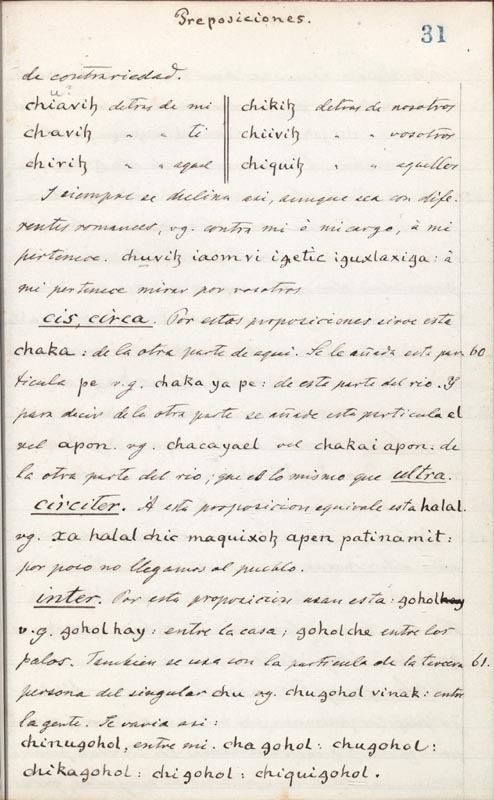 Preposiciones.
31
de contrariedad.
chiaviꜩ detras de mi chikiꜩ detras de nosotros
chaviꜩ „ „ ti chiiviꜩ „ „ vosotros
chiriꜩ „ „ aquel chiquiꜩ „ „ aquellos
I siempre se declina asi, aunque sea con dife-
rentes romances, vg. contra mi ò mi cargo, à mi
pertenece. chuviꜩ iaomvi igetic iguxlaxiga: à
mi pertenece mirar por vosotros
cis, circa. Por estas proposiciones sirve esta
chaka: de la otra parte de aqui. Se le añade esta par- 60
ticula pe v.g. chaka ya pe: de este parte del rio. Y
para decir de la otra parte se añade esta particula el
vel apon. vg. chacayael vel chakai apon: de
la otra parte del rio; que es lo mismo que ultra.
circiter. A esta proposicion equivale esta halal.
vg. xa halal chic maquixoꜩ apen patinamit:
por poco no llegamos al pueblo.
inter. Por esta proposicion usan esta: gohol
v.g. gohol hay: entre la casa; gohol che entre los
palos. Tambien se usa con la particula de la tercera 61.
persona del singular chu vg. chugohol vinak: entre
la gente. Se varia asi:
chinugohol, entre mi. cha gohol: chugohol:
chikagohol: chigohol: chiquigohol.